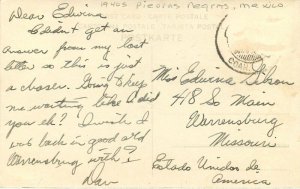 Piedras Negras, Mexico
Dear Edwina
Didn't get an
answer from my last
letter so this is just
a chaser. Going to keep
me waiting like I did
you eh? I wish I
was back in good old
Warrensburg with?
Dav
CARTE POSTALE
POSTKARTE
Miss Edwina
418 So Main
Warrensburg
Missouri
Estado Unidos de
America